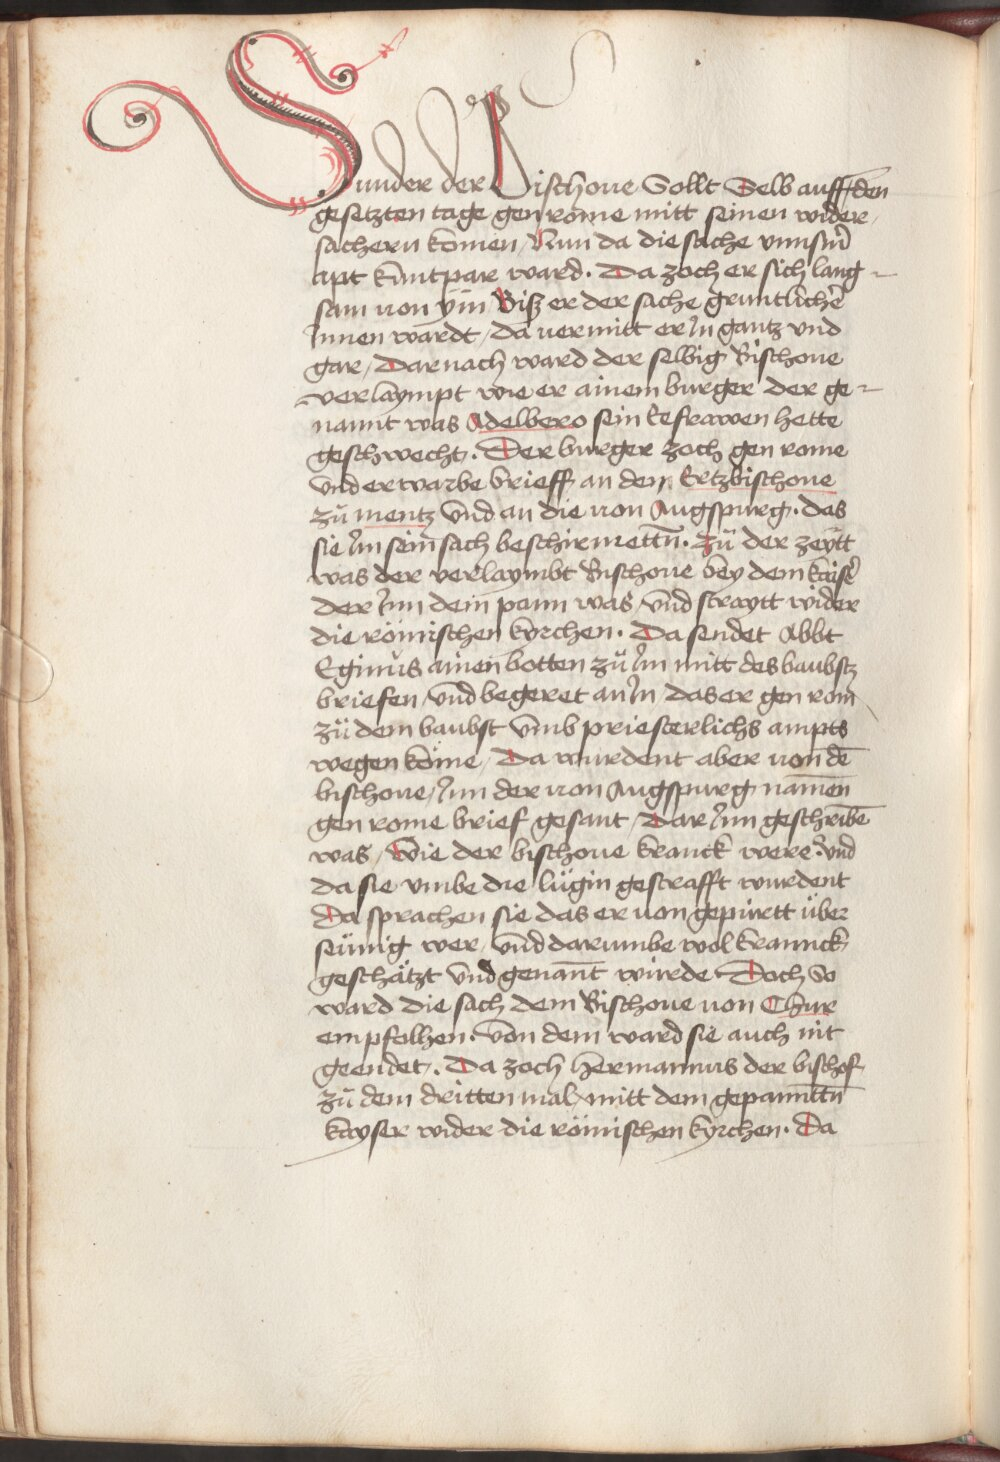 Sunder der Bischoue Sollt Selb auff den
gesetzten tage gen rome mitt seinen wider,
sachern komen, Nun da die sache vnnsm̄
apt kuntpar ward. Da zoch er sich lang-
sam von ym Biß er der sache gruntlichē
Jnnen wardt, da vermitt er Jn gantz vnd
gar, Darnach ward der selbig Bischoue
verlaympt wie er ainem burger der ge-
nannt was Adelbero sein Eefrawen hette
geschwecht. Der burger zoch gen rome
vnd erwarbe brieff an dem Ertzbischoue
zů mentz vnd an die von Augspurg. das
sie Jm sein sach beschirmettn̄. Zů der zeytt
was der verlaymbt Bischoue bey dem kaiser
der Jnn dem pann was, vnd straytt wider
die römischen kyrchen. Da sendet Abbt
Eginus ainen botten zů Jm mitt des baubstz
briefen, vnd begeret an Jn das er gen rom
zů dem baubst vmb priesterlichs ampts
wegen köme, Da wurdent aber von dē
bischoue, Jnn der von Augspurg namen
gen rome brief gesant, Dar Jnn geschribē
was, Wie der bischoue kranck were. vnd
da sie vmbe die lügin gestrafft wurdent
Da sprachen sie das er von gepürtt über
seünig wer, vnd darumbe wol krannck
geschätzt vnd genant würde Doch so
ward die sach dem Bischoue von Chur
empfolhen. von dem ward sie auch nit
geendet. Da zoch Hermannus der bischof
zů dem dritten mal, mitt dem gepanntn̄
kayser wider die römischen kyrchen. Da